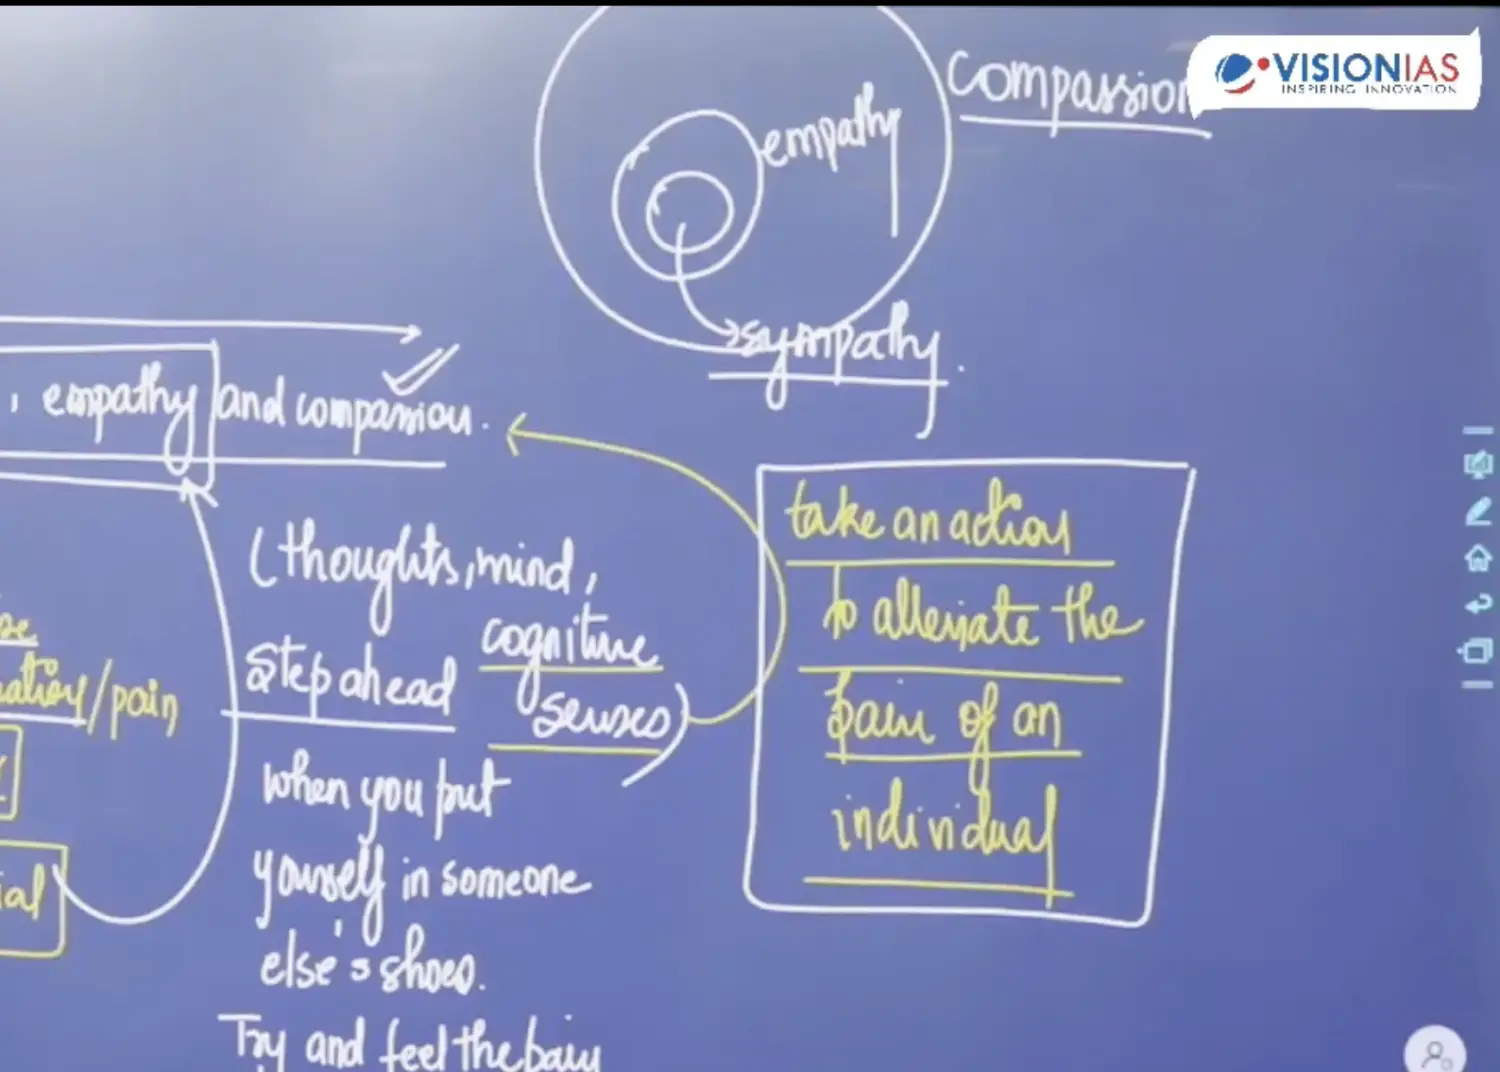 compassion
VISIONIAS
INSPIRING INNOVATION
empathy
sympathy.
, empathy and compassion.
take an action
to alleviate the
pain of an
individual
(thoughts, mind,
cognitive
senses)
step ahead
/pain
when you put
yourself in someone
else's shoes.
Try and feel the pain